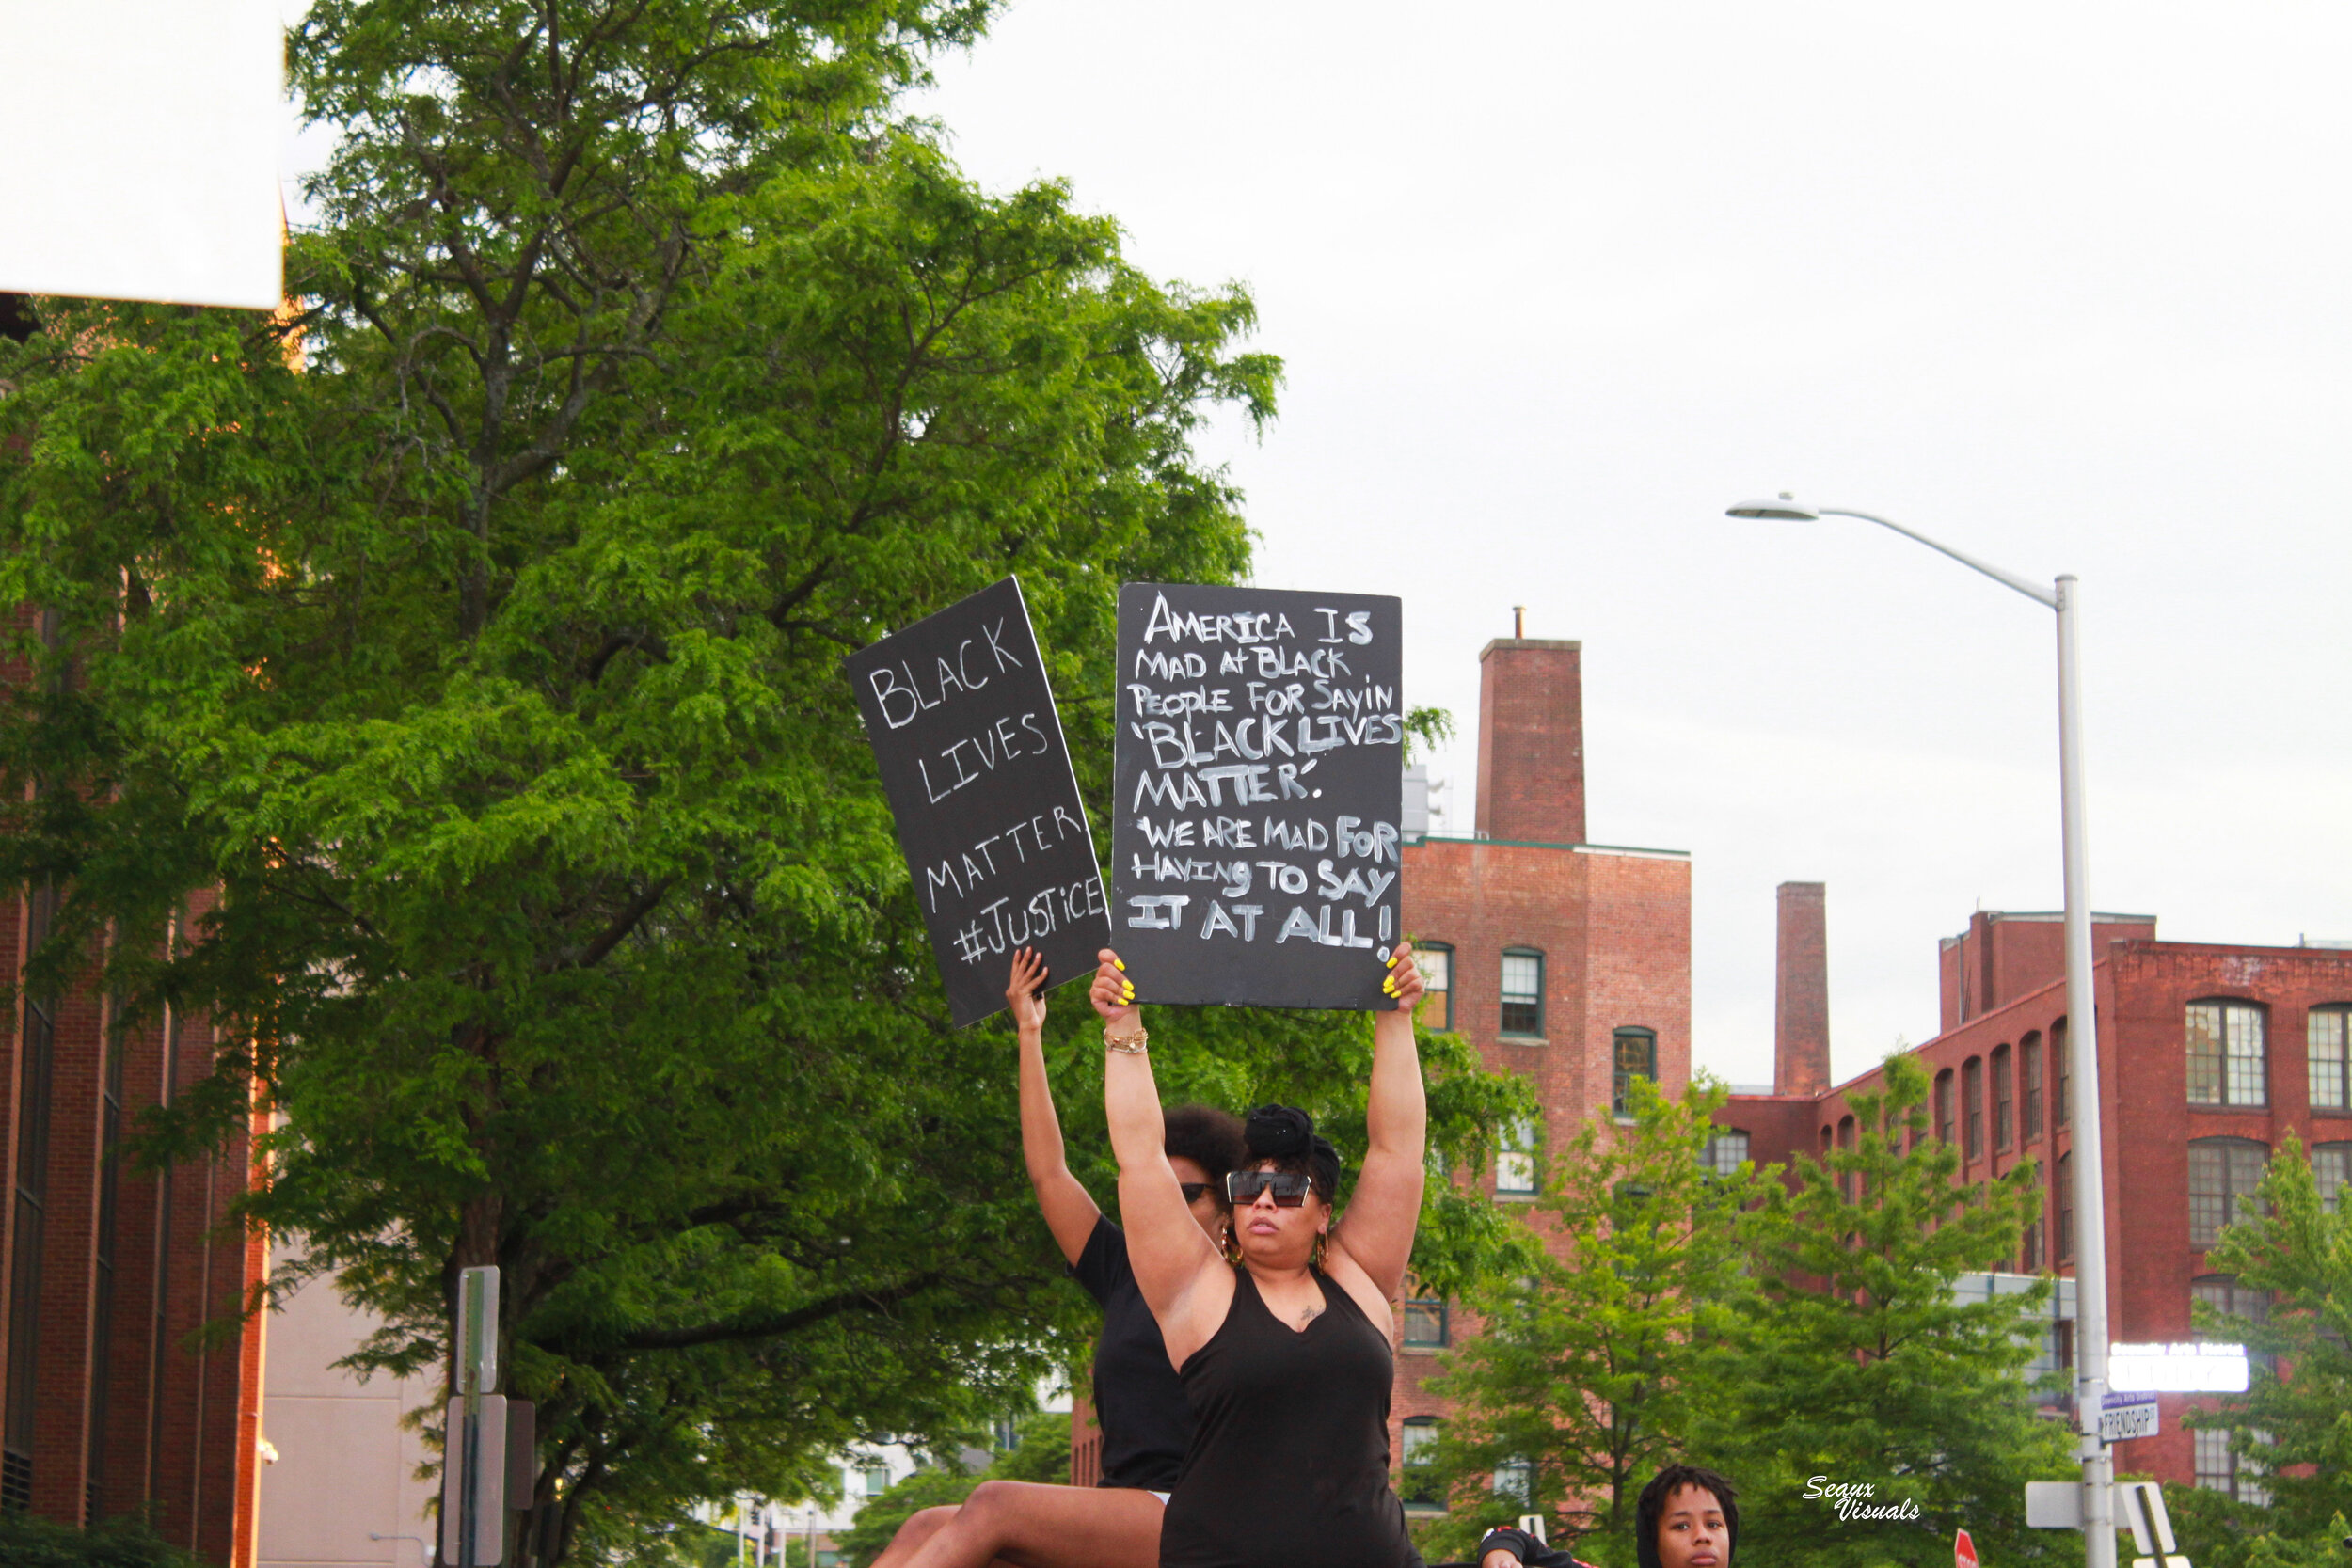 BLACK
LIVES
MATTER
#JUSTiCE
AMERICA IS
MAD At BLACK
PEOPLE FOR SAyiN
'BLACK LIVES
MATTER'.
'WE ARE MAD FOR
HAVING TO SAY
IT AT ALL!
FRIENDSHIP ST
Seaux
Visuals